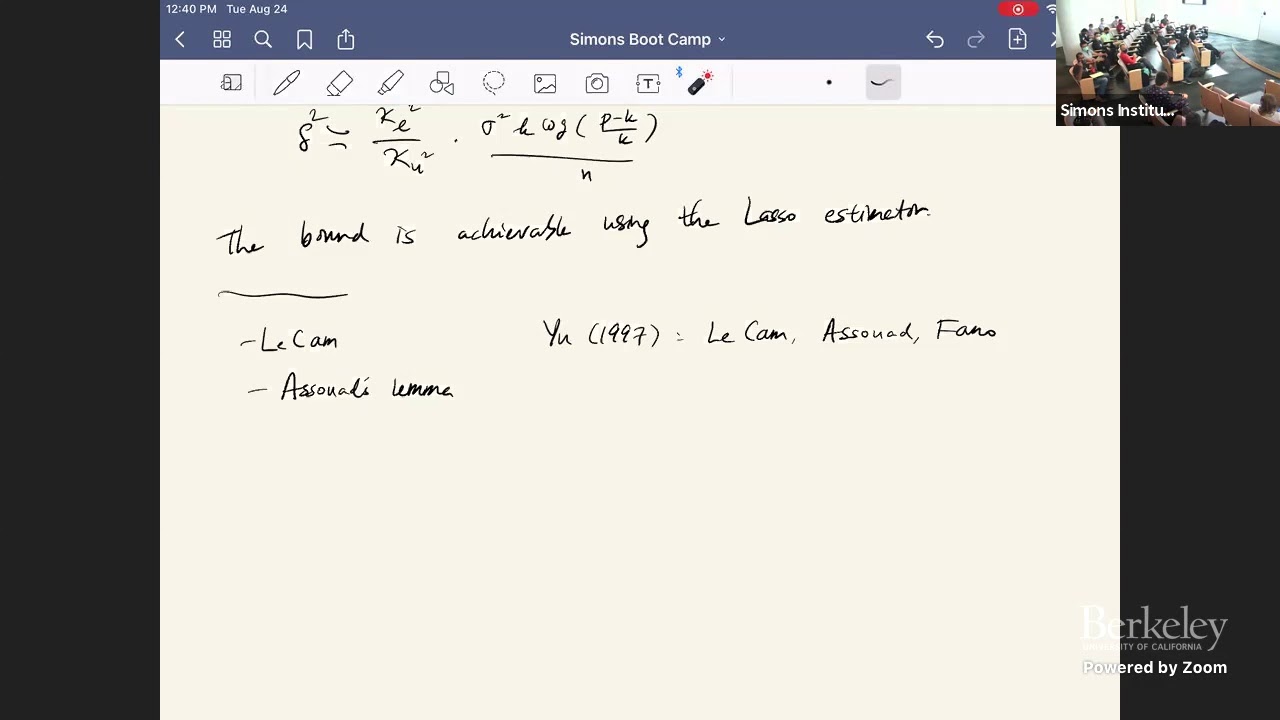 12:40 PM Tue Aug 24
Simons Boot Camp
Simons Institu...
δ² ≍ κ_ℓ² / κ_u² · σ² k log( (p-k)/k ) / n
The bound is achievable using the Lasso estimator.
- Le Cam
Yu (1997) : Le Cam, Assouad, Fano
- Assouad's lemma
Berkeley
UNIVERSITY OF CALIFORNIA
Powered by Zoom